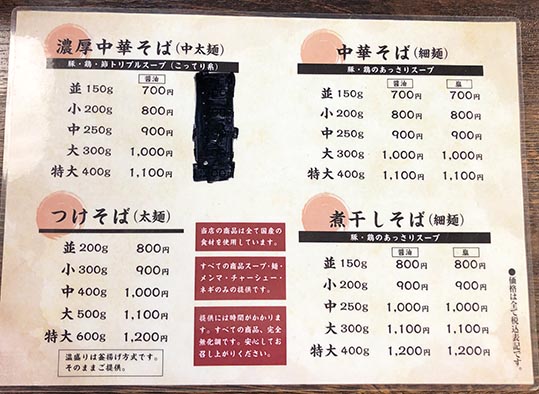 濃厚中華そば(中太麺)
豚・鶏・節トリプルスープ(こってり系)
醤油
並 150g 700円
小 200g 800円
中 250g 900円
大 300g 1,000円
特大 400g 1,100円
中華そば(細麺)
豚・鶏のあっさりスープ
醤油 塩
並 150g 700円 700円
小 200g 800円 800円
中 250g 900円 900円
大 300g 1,000円 1,000円
特大 400g 1,100円 1,100円
つけそば(太麺)
並 200g 800円
小 300g 900円
中 400g 1,000円
大 500g 1,100円
特大 600g 1,200円
温盛りは釜揚げ方式です。
そのままご提供。
当店の商品は全て国産の
食材を使用しています。
すべての商品スープ・麺・
メンマ・チャーシュー・
ネギのみの提供です。
提供には時間がかかりま
す。すべての商品、完全
無化調です。安心してお
召し上がりください。
煮干しそば(細麺)
豚・鶏のあっさりスープ
醤油 塩
並 150g 800円 800円
小 200g 900円 900円
中 250g 1,000円 1,000円
大 300g 1,100円 1,100円
特大 400g 1,200円 1,200円
●価格は全て税込表記です。